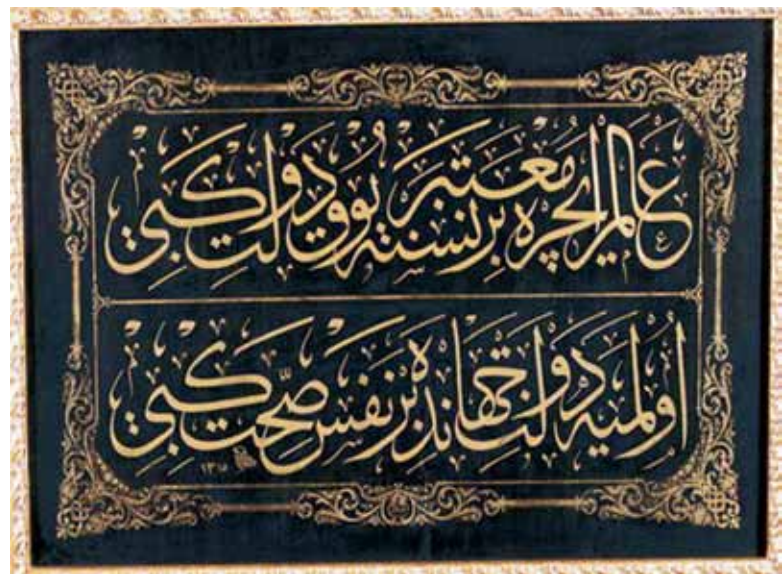 عالم ایچره معتبر بر نسنه یوق دولت كبی
اولمیه دولت جهانده بر نفس صحّت كبی